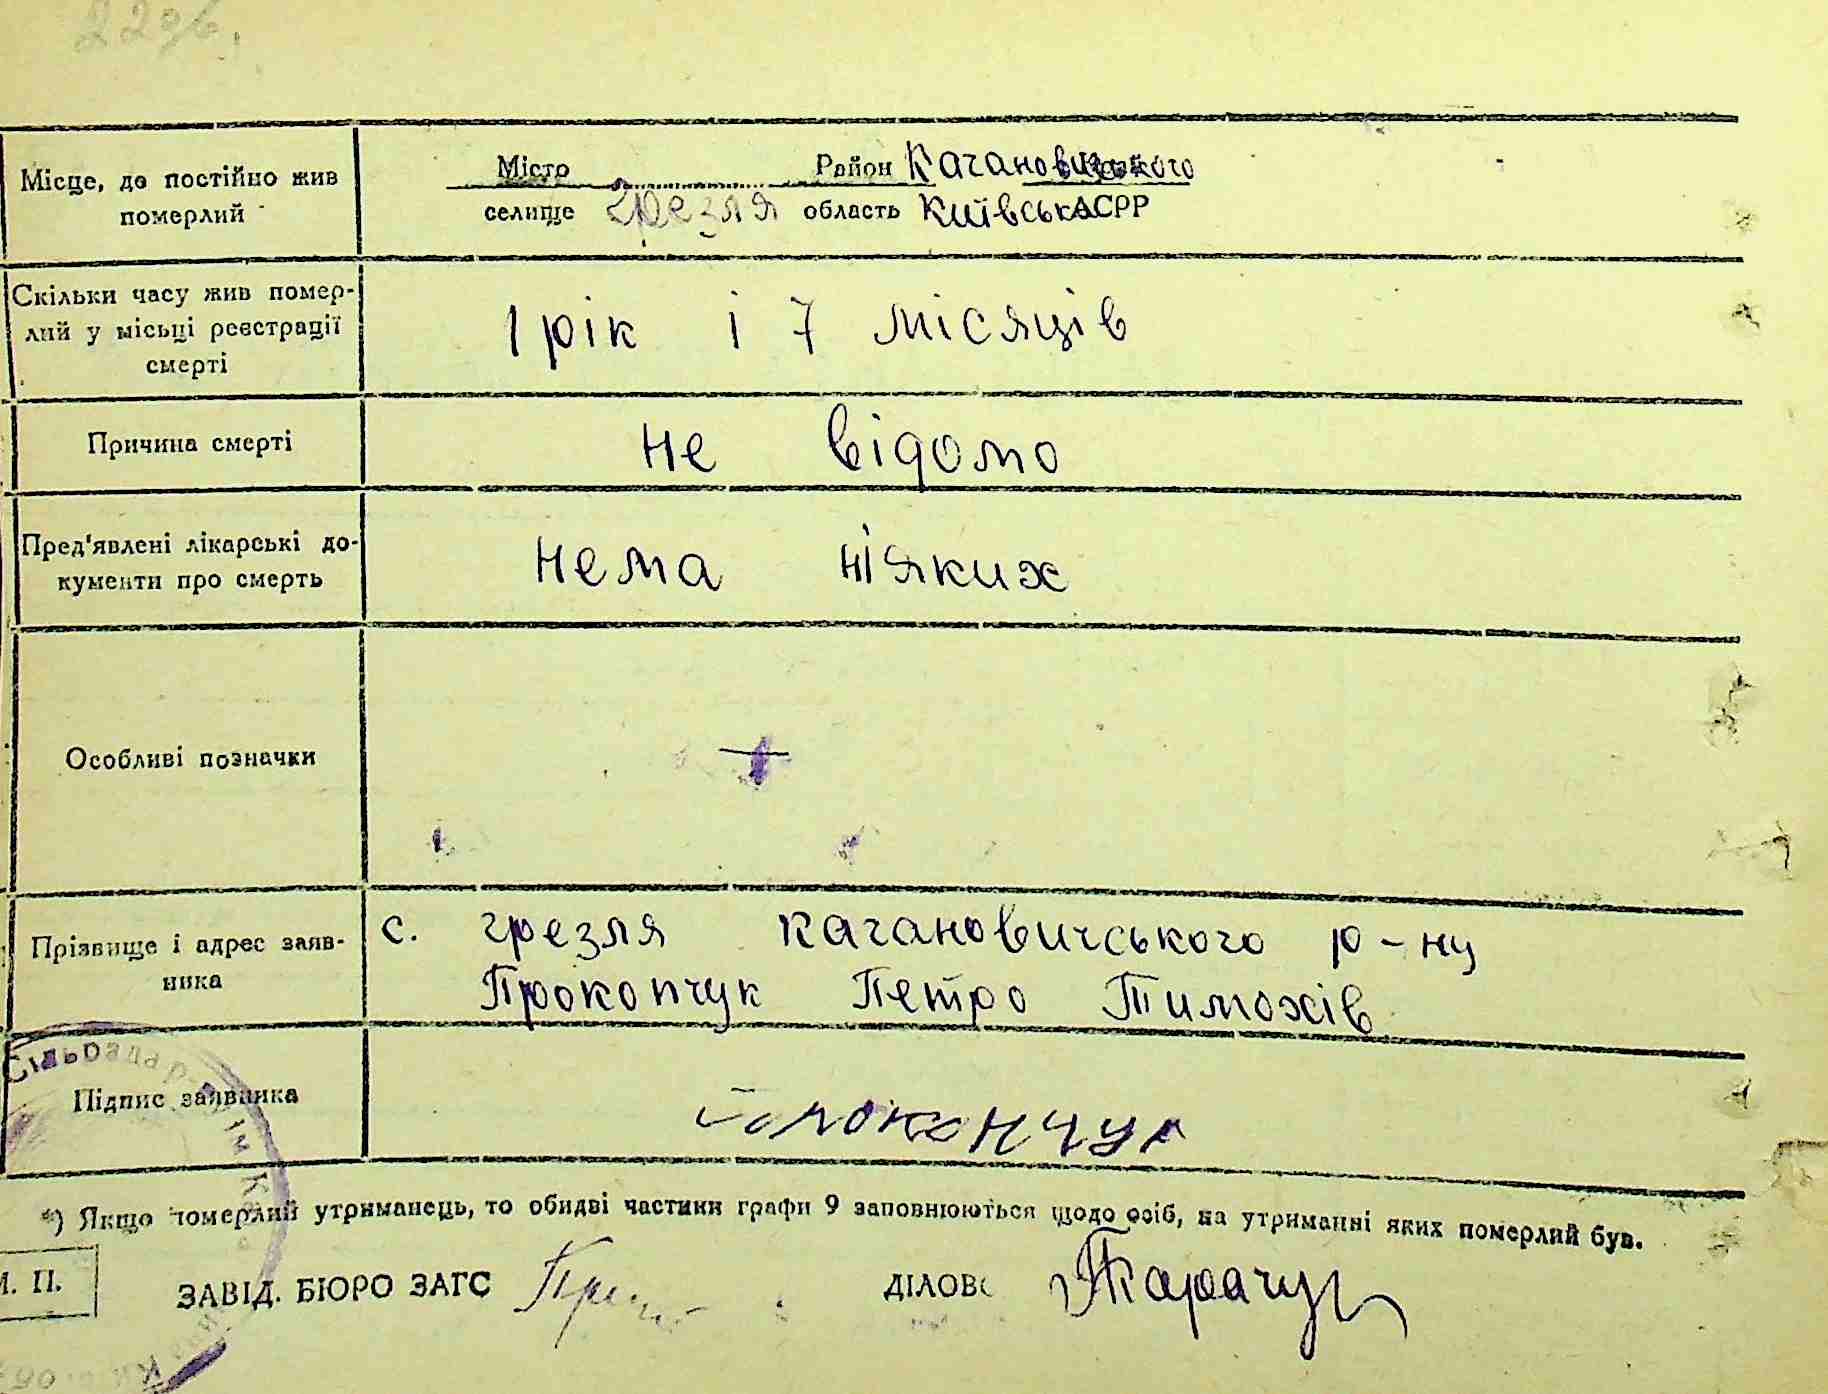 Місце, де постійно жив померлий
Місто Район Кагановицького
селище Грезля область Київська АСРР
Скільки часу жив помер-
лий у місьці реєстрації
смерті
1 рік і 7 місяців
Причина смерті
не відомо
Пред'явлені лікарські до-
кументи про смерть
нема ніяких
Особливі позначки
Прізвище і адрес заяв-
ника
с. грезля кагановичського р-ну
Прокопчук Петро Тимохів
Підпис заявника
Прокопчук
*) Якщо померлий утриманець, то обидві частини графи 9 заповнюються щодо осіб, на утриманні яких померлий був.
М. П.
ЗАВІД. БЮРО ЗАГС
ДІЛОВ
Сільрада